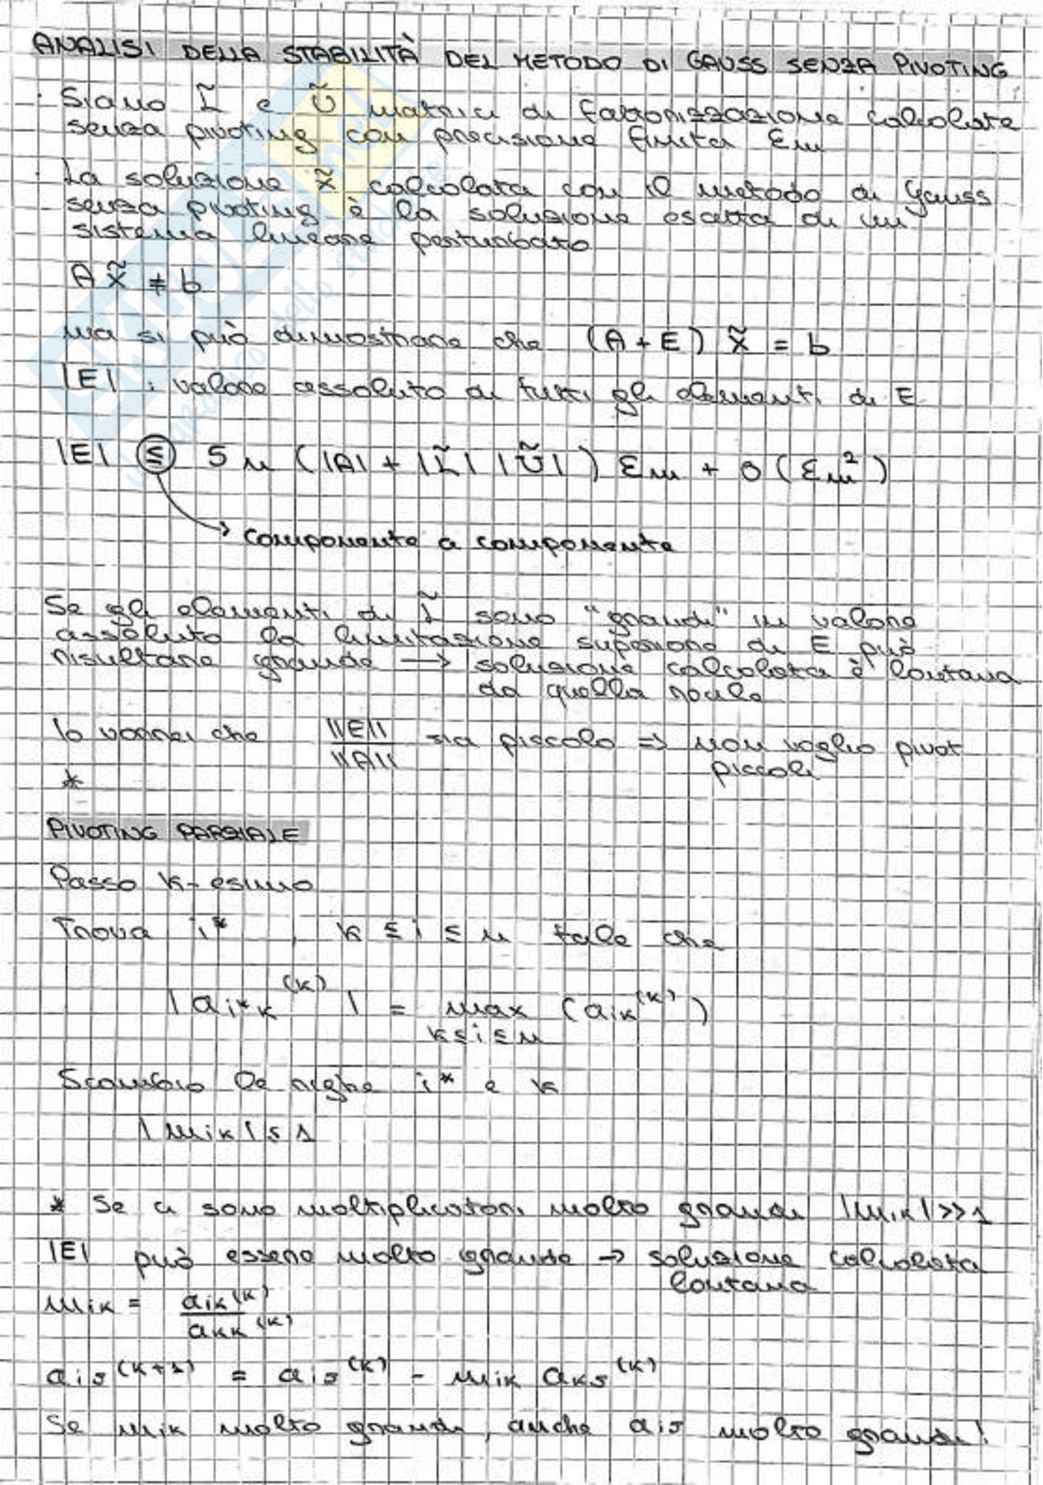 ANALISI DELLA STABILITÀ DEL METODO DI GAUSS SENZA PIVOTING
· Siano L̃ e Ũ matrici di fattorizzazione calcolate
senza pivoting con precisione finita εm
· La soluzione x̃ calcolata con il metodo di Gauss
senza pivoting è la soluzione esatta di un
sistema lineare perturbato
A x̃ ≠ b
ma si può dimostrare che (A+E) x̃ = b
|E| : valore assoluto di tutti gli elementi di E
|E| ≤ 5n (|A| + |L̃| |Ũ|) εm + O(εm²)
→ componente a componente
Se gli elementi di L̃ sono "grandi" in valore
assoluto la limitazione superiore di E può
risultare grande → soluzione calcolata è lontana
da quella reale
Io vorrei che ||E||/||A|| sia piccolo ⇒ non voglio pivot
piccoli
*
PIVOTING PARZIALE
Passo k-esimo
Trova i* , k ≤ i ≤ n tale che
|a_i*k^(k)| = max (a_ik^(k))
k≤i≤n
Scambio le righe i* e k
|m_ik| ≤ 1
* Se ci sono moltiplicatori molto grandi |m_ik| >> 1
|E| può essere molto grande → soluzione calcolata
lontana
m_ik = a_ik^(k) / a_kk^(k)
a_ij^(k+1) = a_ij^(k) - m_ik a_kj^(k)
Se m_ik molto grande, anche a_ij molto grandi!